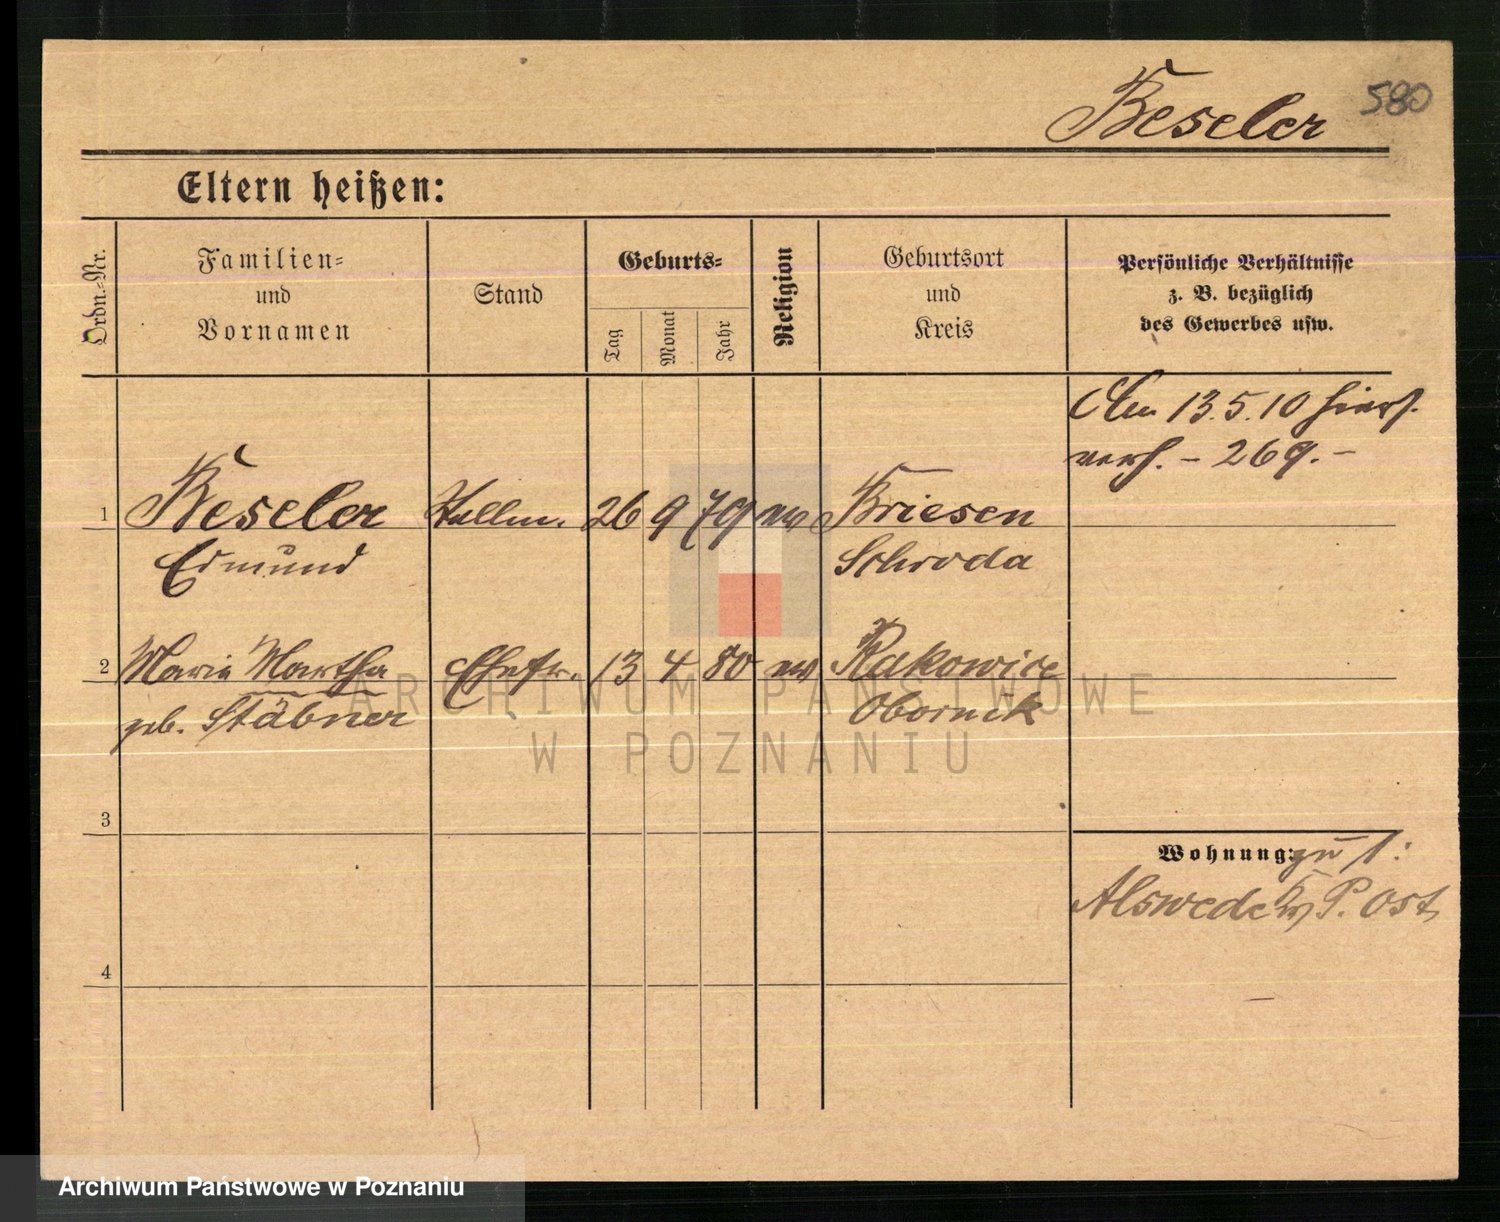 Beseler 580
Eltern heißen:
Ordn.-Nr.
Familien-
und
Vornamen
Stand
Geburts-
Tag
Monat
Jahr
Religion
Geburtsort
und
Kreis
Persönliche Verhältnisse
z. B. bezüglich
des Gewerbes usw.
Am 13.5.10 hiers.
verh. - 269. -
1 Beseler Kellm. 26 9 79 ev Briesen
Edmund Schroda
2 Marie Martha Ehefr. 13 4 80 ev Rakowice
geb. Stäbner Obornik
3
Wohnung: zu 1:
Alswede P. Ost
4
ARCHIWUM PAŃSTWOWE
W POZNANIU
Archiwum Państwowe w Poznaniu